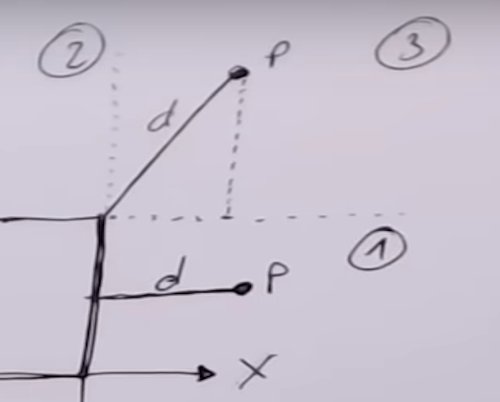 2
P
3
d
1
d
P
X